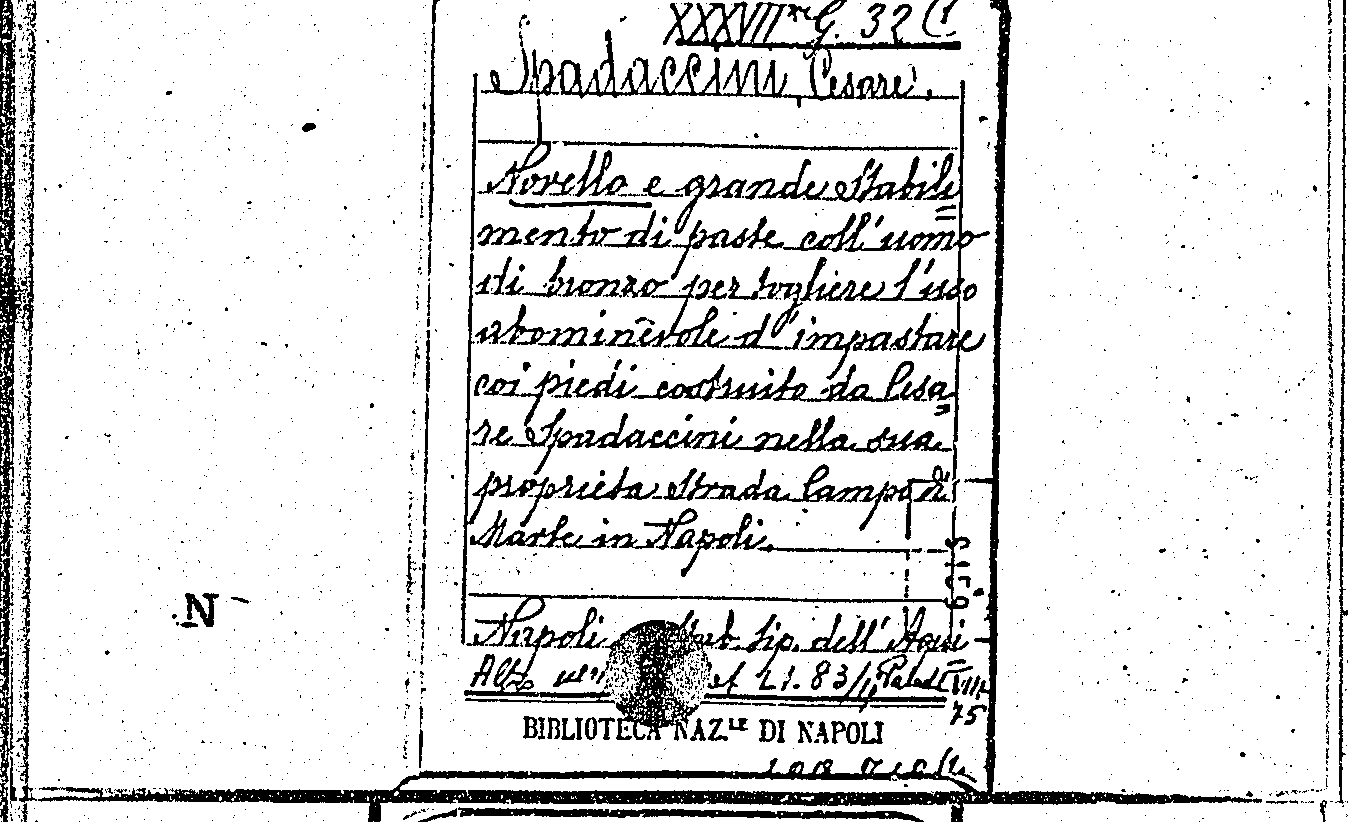 XXXVII G. 32 (1.
Spadaccini, Cesare.
Novello e grande Stabili
mento di paste coll'uomo
di bronzo per togliere l'uso
abominevole d'impastare
coi piedi costruito da Cesa
re Spadaccini nella sua
proprietà Strada Campo di
Marte in Napoli.
S159
N
Napoli Stab. tip. dell' Aqui
21. 83/4
75
BIBLIOTECA NAZ.LE DI NAPOLI